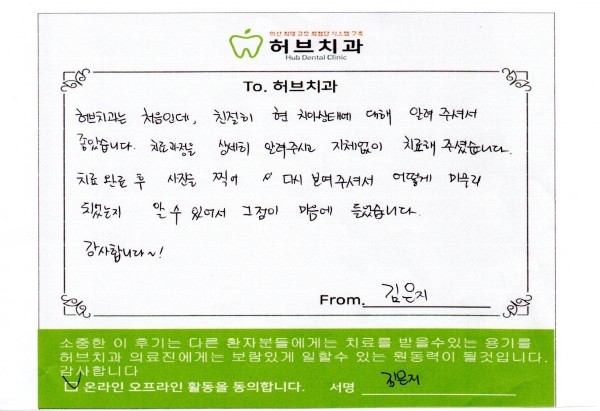 익산 최대 규모 최첨단 시스템 구축
허브치과
Hub Dental Clinic
To. 허브치과
허브치과는 처음인데, 친절히 현 치아상태에 대해 알려 주셔서
좋았습니다. 치료과정을 상세히 알려주시고 지체없이 치료해 주셨습니다.
치료 완료 후 사진을 찍어 다시 보여주셔서 어떻게 마무리
되었는지 알 수 있어서 그점이 마음에 들었습니다.
감사합니다~!
From. 김은지
소중한 이 후기는 다른 환자분들에게는 치료를 받을수있는 용기를
허브치과 의료진에게는 보람있게 일할수 있는 원동력이 될것입니다.
감사합니다
온라인 오프라인 활동을 동의합니다. 서명 김은지